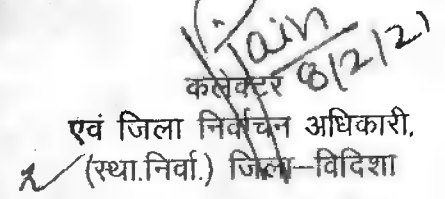 Jain
8/2/21
कलेक्टर
एवं जिला निर्वाचन अधिकारी,
(स्था.निर्वा.) जिला–विदिशा